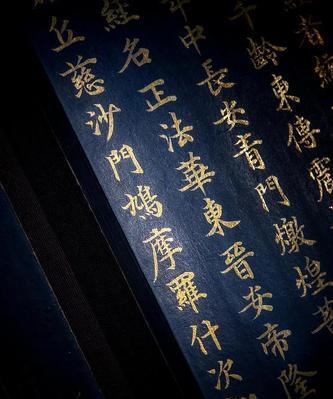 千齡東傳震
年中長安青門燉煌菩
經名正法華東晉安帝隆
丘慈沙門鳩摩羅什次